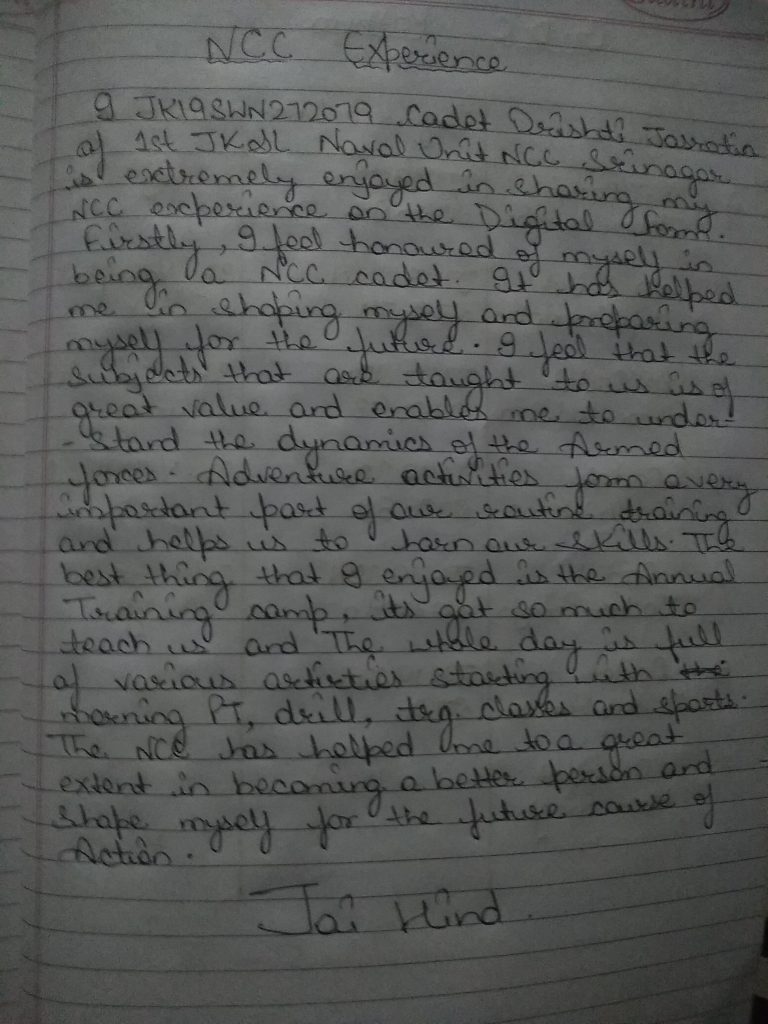 NCC Experience
I JK19SWN272079 Cadet Drishti Jasrotia
of 1st JK Naval Unit NCC Srinagar
is extremely enjoyed in sharing my
NCC experience on the Digital form.
Firstly, I feel honoured of myself in
being a NCC cadet. It has helped
me in shaping myself and preparing
myself for the future. I feel that the
subjects that are taught to us is of
great value and enables me to under-
-stand the dynamics of the Armed
forces. Adventure activities form a very
important part of our routine training
and helps us to harn our skills. The
best thing that I enjoyed is the Annual
Training camp, its got so much to
teach us and The whole day is full
of various activities starting with the
morning PT, drill, trg. classes and sports.
The NCC has helped me to a great
extent in becoming a better person and
shape myself for the future course of
Action.
Jai Hind.